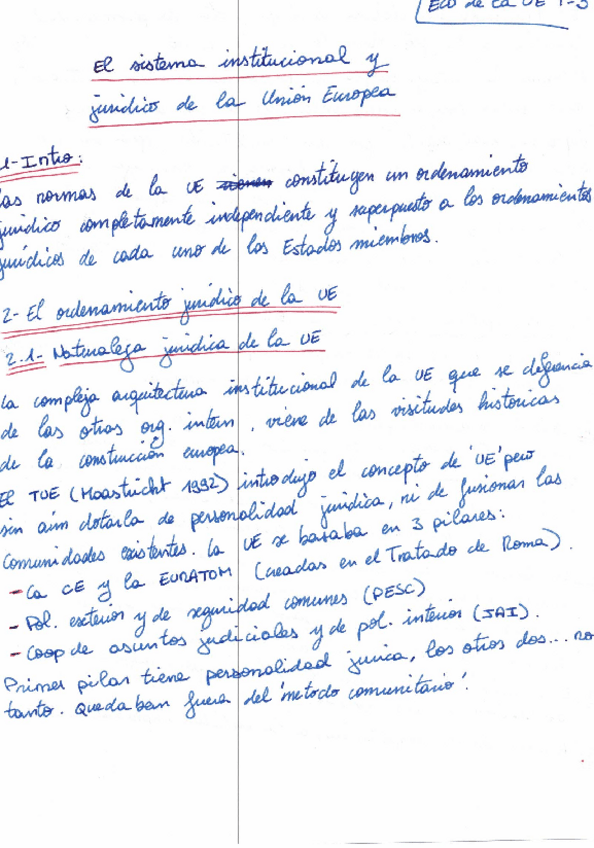 Eco de la UE T-3
El sistema institucional y
jurídico de la Unión Europea
1-Intro:
Las normas de la UE vienen constituyen un ordenamiento
jurídico completamente independiente y superpuesto a los ordenamientos
jurídicos de cada uno de los Estados miembros.
2- El ordenamiento jurídico de la UE
2.1- Naturaleza jurídica de la UE
La compleja arquitectura institucional de la UE que se diferencia
de las otras org. intern, viene de las visitudes históricas
de la construcción europea.
El TUE (Maastricht 1992) introdujo el concepto de 'UE' pero
sin aún dotarla de personalidad jurídica, ni de fusionar las
comunidades existentes. La UE se basaba en 3 pilares:
- La CE y la EURATOM (creadas en el Tratado de Roma).
- Pol. exterior y de seguridad comunes (PESC)
- Coop de asuntos judiciales y de pol. interior (JAI).
Primer pilar tiene personalidad jurica, los otros dos... no
tanto. Quedaban fuera del 'metodo comunitario'.